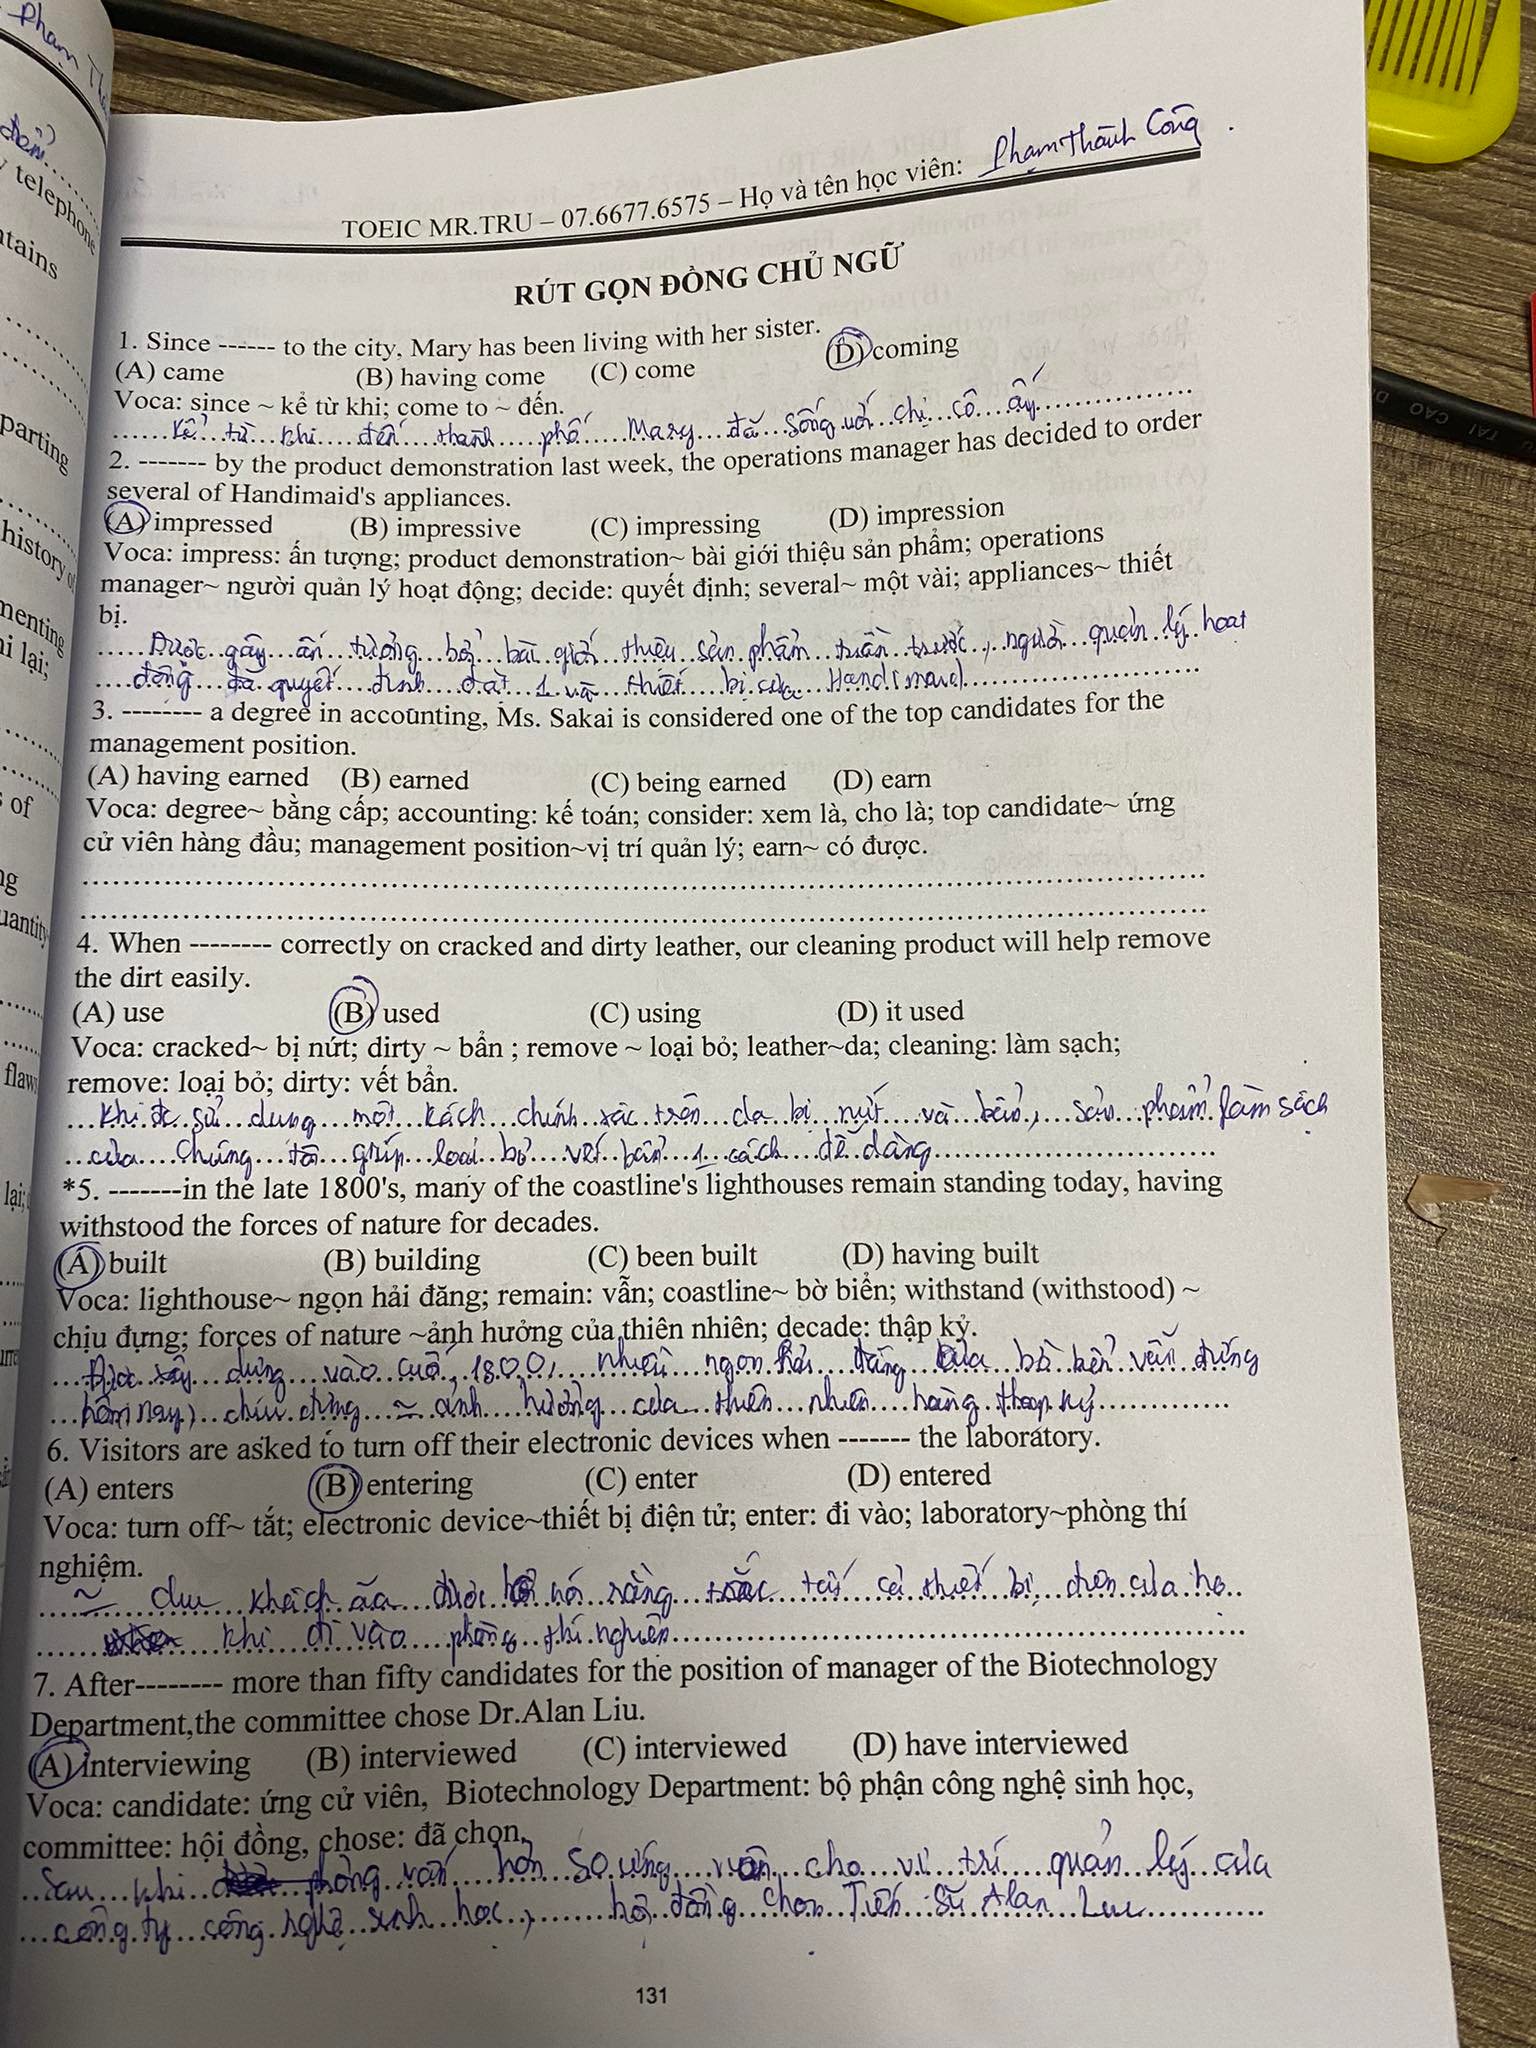 Phạm Th
điểm
telephone
tains
parting
history of
menting
i lại;
of
ng
uantity
flaw
lại;
TOEIC MR.TRU – 07.6677.6575 – Họ và tên học viên: Phạm Thành Công
RÚT GỌN ĐỒNG CHỦ NGỮ
1. Since ------ to the city, Mary has been living with her sister.
(A) came (B) having come (C) come (D) coming
Voca: since ~ kể từ khi; come to ~ đến.
kể từ khi đến thành phố Mary đã sống với chị cô ấy
2. ------- by the product demonstration last week, the operations manager has decided to order
several of Handimaid's appliances.
(A) impressed (B) impressive (C) impressing (D) impression
Voca: impress: ấn tượng; product demonstration~ bài giới thiệu sản phẩm; operations
manager~ người quản lý hoạt động; decide: quyết định; several~ một vài; appliances~ thiết
bị.
Được gây ấn tượng bởi bài giới thiệu sản phẩm tuần trước, người quản lý hoạt
động đã quyết định đặt 1 vài thiết bị của Handimaid
3. -------- a degree in accounting, Ms. Sakai is considered one of the top candidates for the
management position.
(A) having earned (B) earned (C) being earned (D) earn
Voca: degree~ bằng cấp; accounting: kế toán; consider: xem là, cho là; top candidate~ ứng
cử viên hàng đầu; management position~vị trí quản lý; earn~ có được.
4. When -------- correctly on cracked and dirty leather, our cleaning product will help remove
the dirt easily.
(A) use (B) used (C) using (D) it used
Voca: cracked~ bị nứt; dirty ~ bẩn ; remove ~ loại bỏ; leather~da; cleaning: làm sạch;
remove: loại bỏ; dirty: vết bẩn.
khi đc sử dụng một cách chính xác trên da bị nứt và bẩn, sản phẩm làm sạch
của chúng tôi giúp loại bỏ vết bẩn 1 cách dễ dàng
*5. -------in the late 1800's, many of the coastline's lighthouses remain standing today, having
withstood the forces of nature for decades.
(A) built (B) building (C) been built (D) having built
Voca: lighthouse~ ngọn hải đăng; remain: vẫn; coastline~ bờ biển; withstand (withstood) ~
chịu đựng; forces of nature ~ảnh hưởng của thiên nhiên; decade: thập kỷ.
Được xây dựng vào cuối 1800, nhiều ngọn hải đăng của bờ biển vẫn đứng
hôm nay, chịu đựng ~ ảnh hưởng của thiên nhiên hàng thập kỷ
6. Visitors are asked to turn off their electronic devices when ------- the laboratory.
(A) enters (B) entering (C) enter (D) entered
Voca: turn off~ tắt; electronic device~thiết bị điện tử; enter: đi vào; laboratory~phòng thí
nghiệm.
~ du khách được rằng tất cả thiết bị điện của họ
khi đi vào phòng thí nghiệm
7. After-------- more than fifty candidates for the position of manager of the Biotechnology
Department,the committee chose Dr.Alan Liu.
(A) interviewing (B) interviewed (C) interviewed (D) have interviewed
Voca: candidate: ứng cử viên, Biotechnology Department: bộ phận công nghệ sinh học,
committee: hội đồng, chose: đã chọn,
Sau khi phỏng vấn hơn 50 ứng viên cho vị trí quản lý của
công ty công nghệ sinh học, hội đồng chọn Tiến sĩ Alan Luu
131